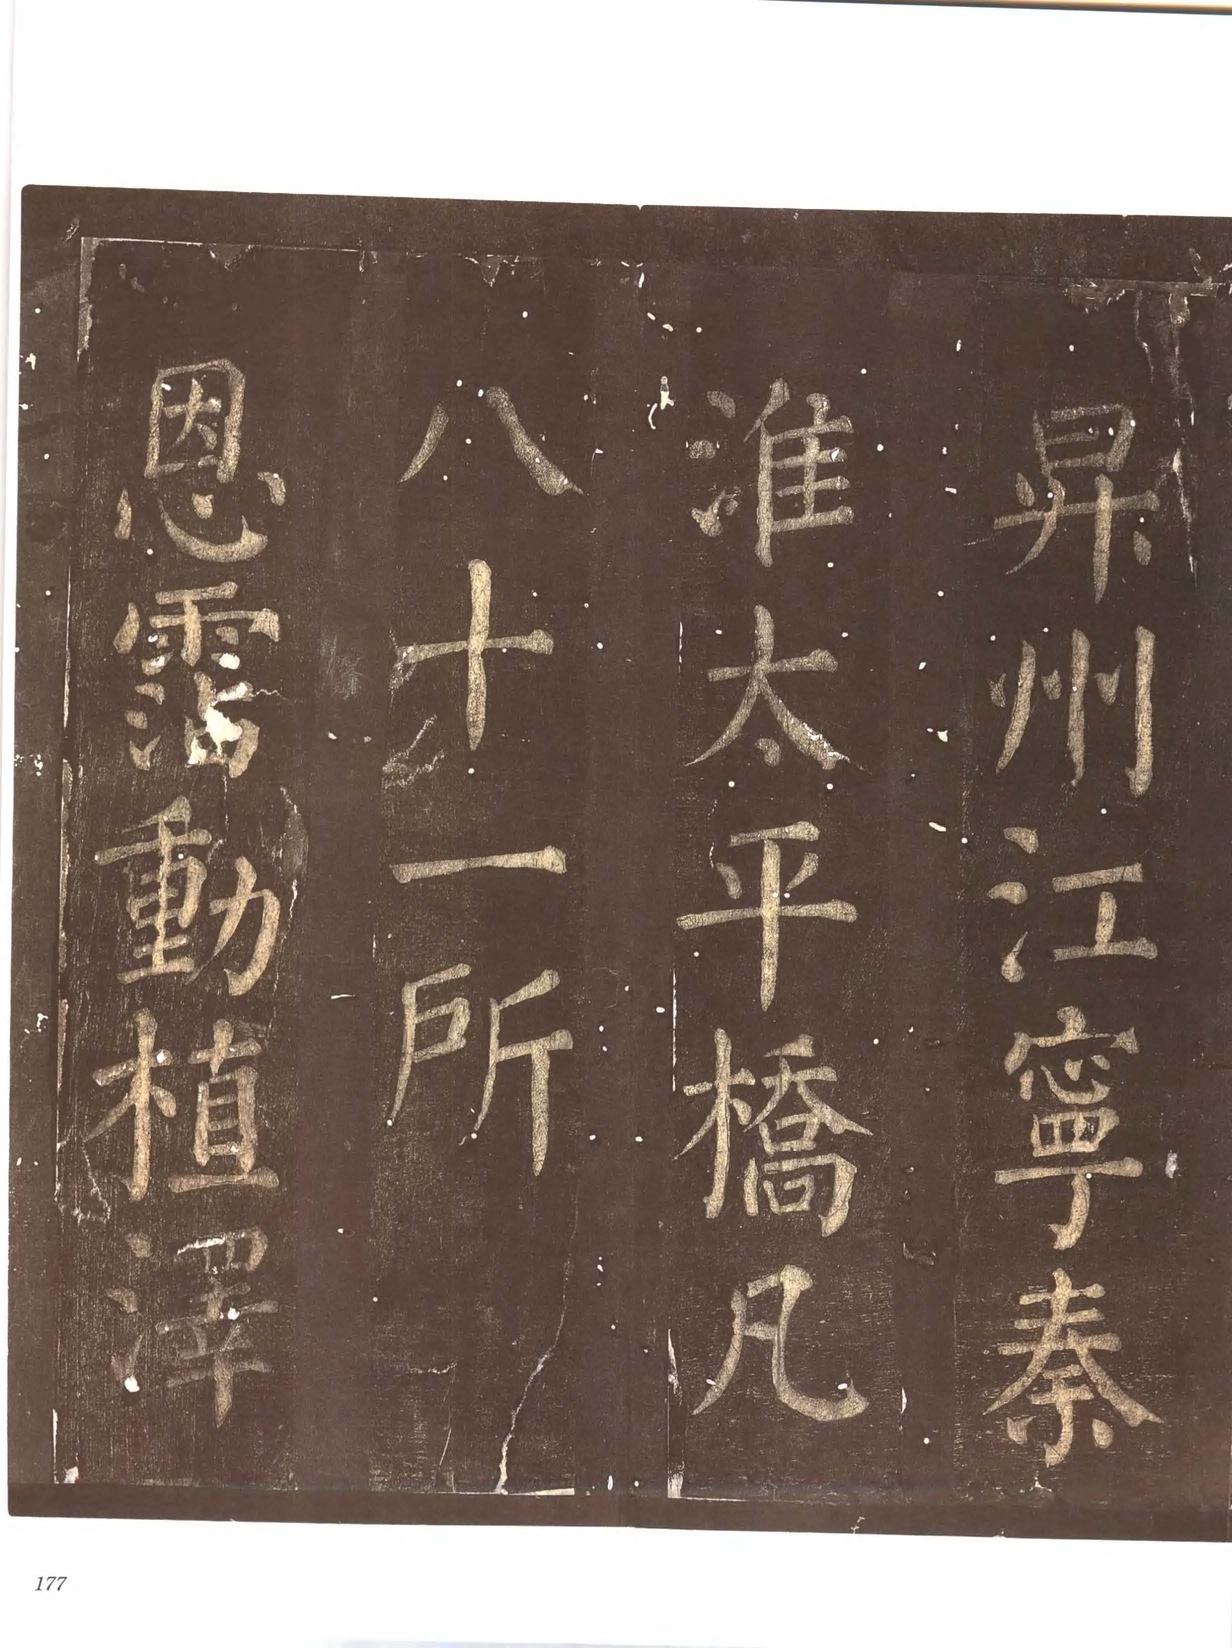 昇州江寧秦
淮太平橋凡
八十一所
恩霑動植澤
177